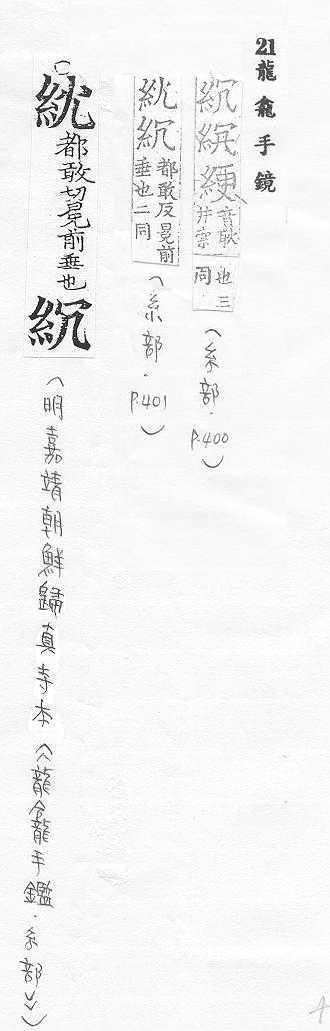 21龍龕手鏡
音耽也三
并宗同
(糸部.P.400)
紞
都敢反冕前
垂也二同
(糸部.P.401)
紞都敢切冕前垂也
(明嘉靖朝鮮歸真寺本《龍龕手鑑.糸部》)